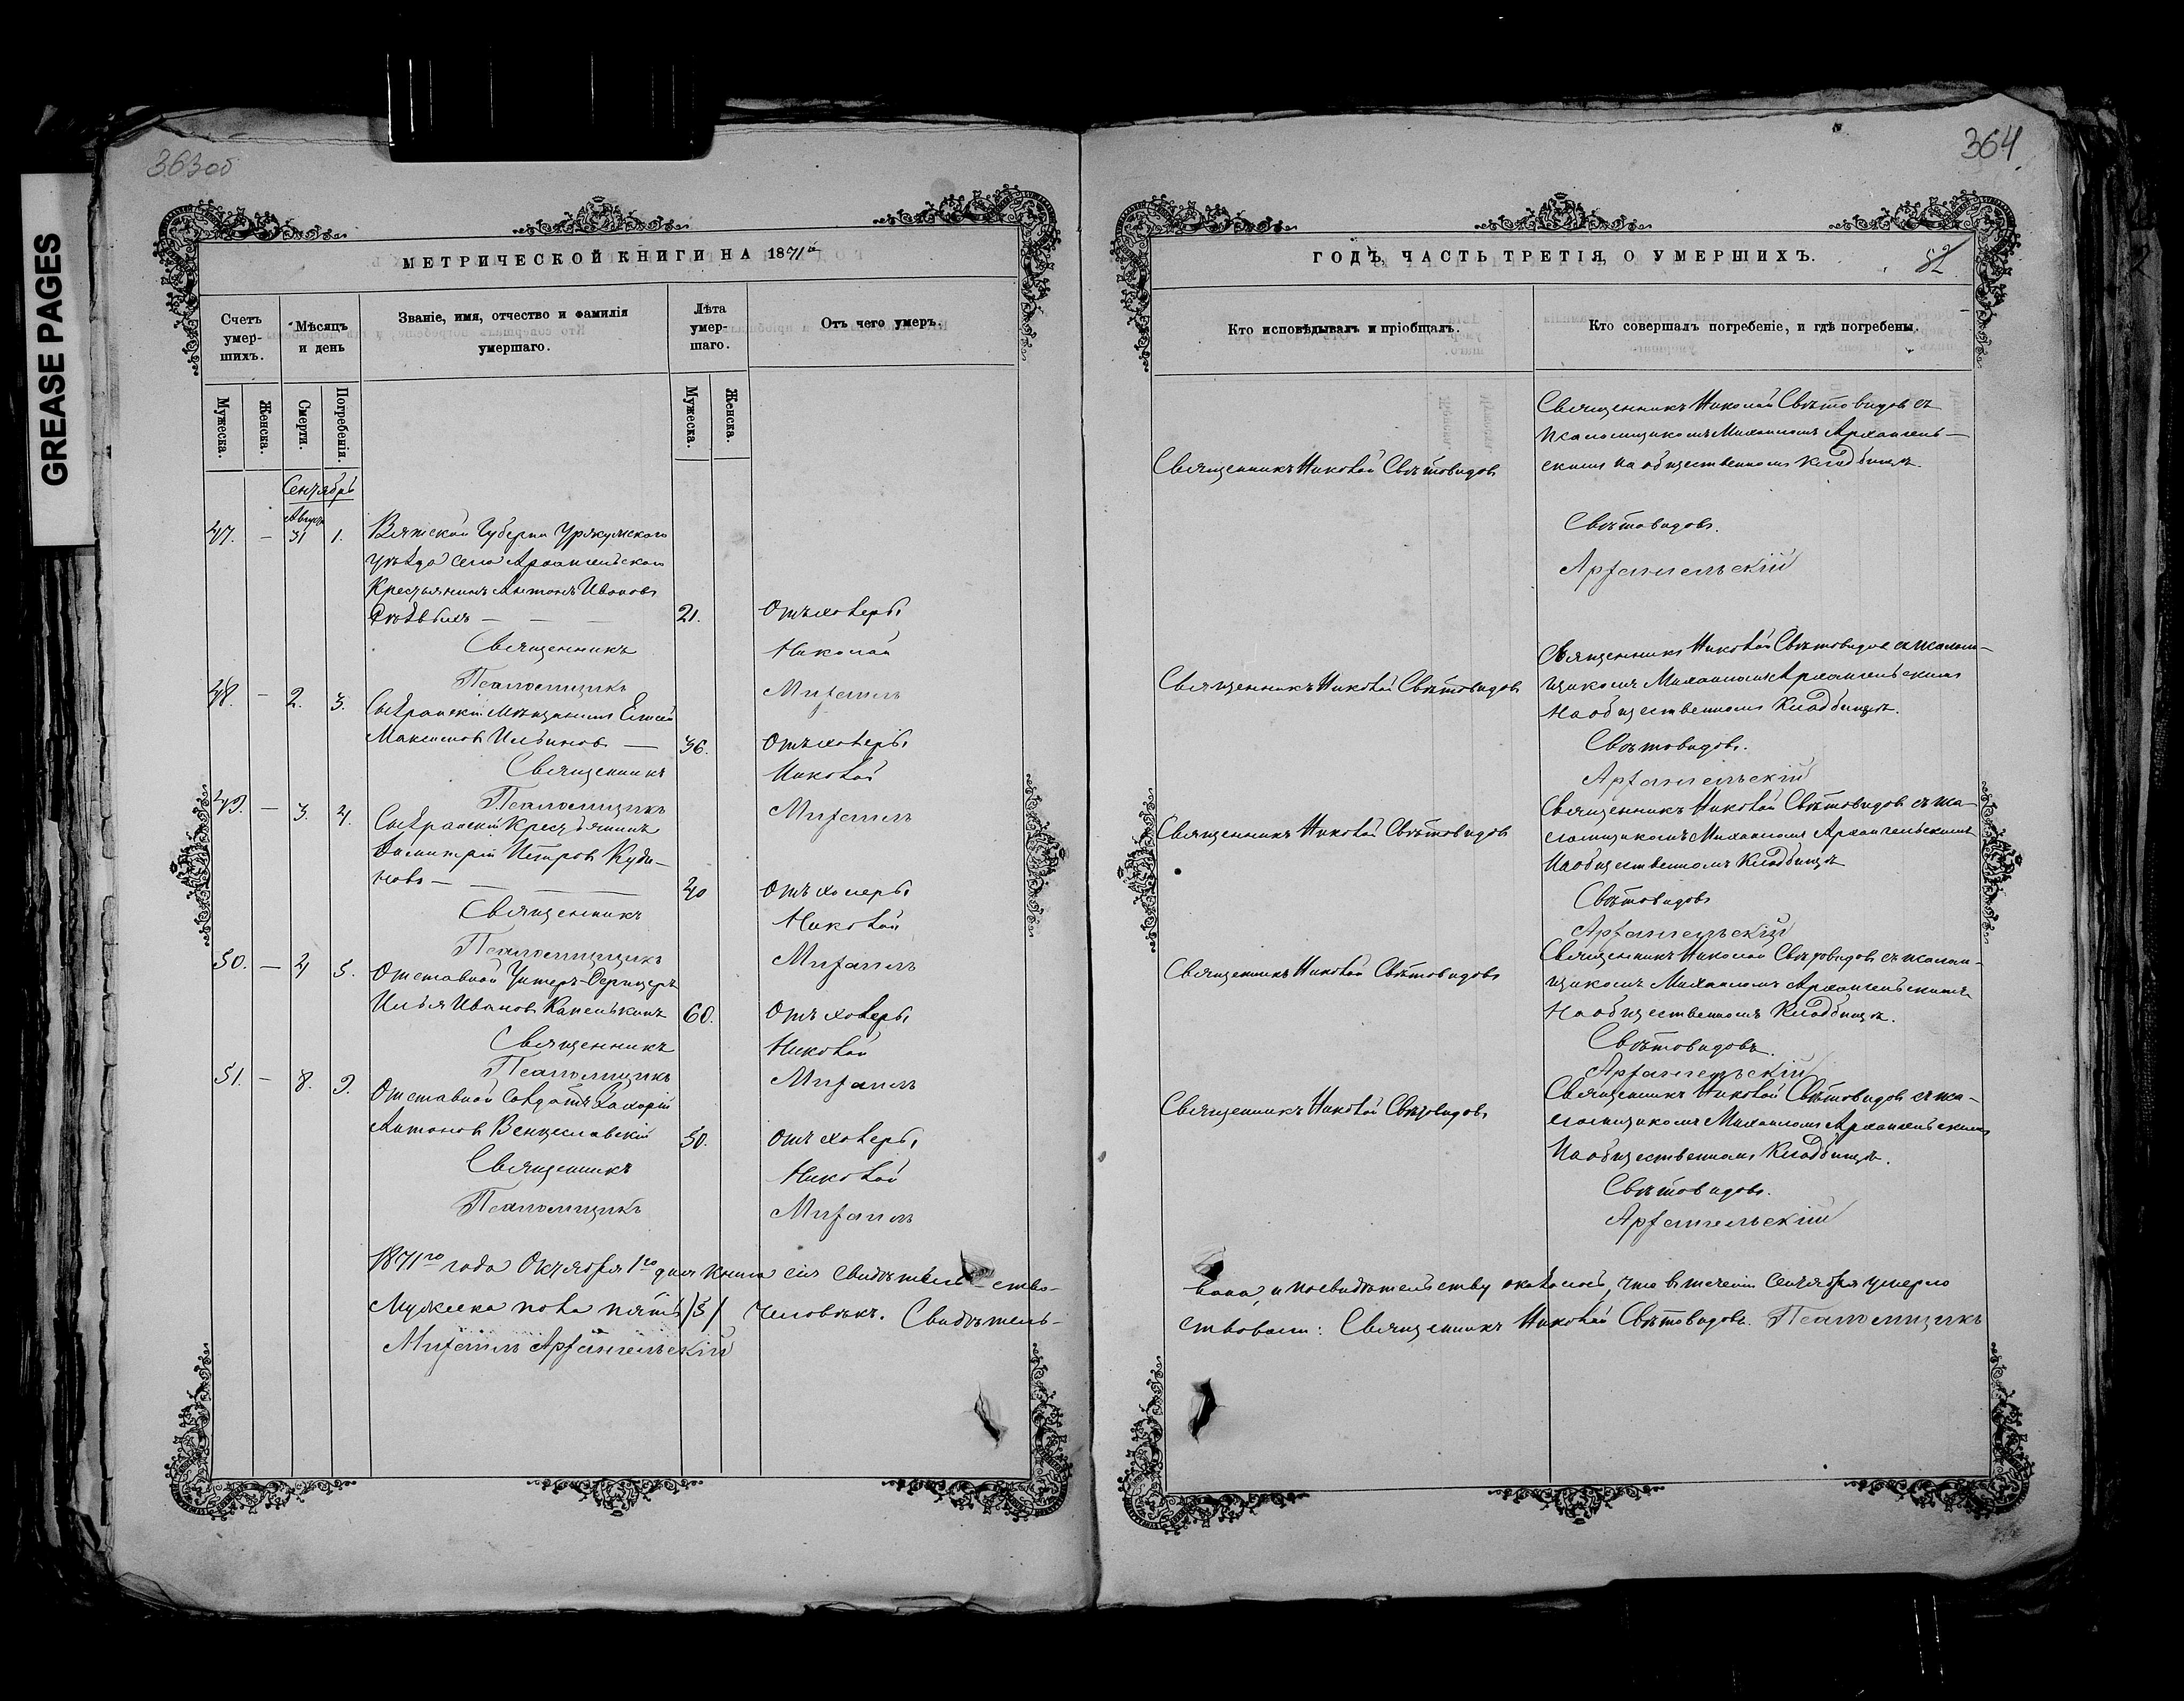 363об
364
GREASE PAGES
МЕТРИЧЕСКОЙ КНИГИ НА 1871й
Счетъ умер-шихъ.
Мѣсяцъ и день
Званіе, имя, отчество и фамилія умершаго.
Лѣта умер-шаго.
Отъ чего умеръ.
Мужеска.
Женска.
Смерти.
Погребенія.
Мужеска.
Женска.
Сентябрь
Август
47. — 31 1. Вятской Губерніи Уржумскаго
уѣзда села Архангельскаго
Крестьянинъ Антонъ Ивановъ
21. Отъ холеры
Священникъ Николай
Псаломщикъ Михаилъ
48. — 2. 3. Сызранскій мѣщанинъ
Максимовъ Ильиновъ — 36. Отъ холеры
Священникъ Николай
Псаломщикъ Михаилъ
49. — 3. 4. Сызранскій Крестьянинъ
Димитрій Петровъ Куди-
новъ — 40 Отъ холеры
Священникъ Николай
Псаломщикъ Михаилъ
50. — 4 5. Отставной Унтеръ-Офицеръ
Илья Ивановъ Капелькинъ 60. Отъ холеры
Священникъ Николай
Псаломщикъ Михаилъ
51. — 8. 9. Отставной Солдатъ Захарій
Антоновъ Венцеславскій 50. Отъ холеры
Священникъ Николай
Псаломщикъ Михаилъ
1871го года Октября 1го дня книга сія свидѣтельство-
Мужеска пола пять /5/ человѣкъ. Свидѣтель-
Михаилъ Архангельскій
ГОДЪ, ЧАСТЬ ТРЕТІЯ, О УМЕРШИХЪ.
52
Кто исповѣдывалъ и пріобщалъ.
Кто совершалъ погребеніе, и гдѣ погребены.
Священникъ Николай Свѣтовидовъ
Священникъ Николай Свѣтовидовъ съ
псаломщикомъ Михаиломъ Архангель-
скимъ на общественномъ кладбищѣ.
Свѣтовидовъ.
Архангельскій
Священникъ Николай Свѣтовидовъ
Священникъ Николай Свѣтовидовъ съ псалом-
щикомъ Михаиломъ Архангельскимъ
на общественномъ кладбищѣ.
Свѣтовидовъ.
Архангельскій
Священникъ Николай Свѣтовидовъ
Священникъ Николай Свѣтовидовъ съ пса-
ломщикомъ Михаиломъ Архангельскимъ
на общественномъ кладбищѣ
Свѣтовидовъ
Архангельскій
Священникъ Николай Свѣтовидовъ
Священникъ Николай Свѣтовидовъ съ псалом-
щикомъ Михаиломъ Архангельскимъ
на общественномъ кладбищѣ.
Свѣтовидовъ.
Архангельскій
Священникъ Николай Свѣтовидовъ
Священникъ Николай Свѣтовидовъ съ пса-
ломщикомъ Михаиломъ Архангельскимъ
на общественномъ кладбищѣ.
Свѣтовидовъ.
Архангельскій
вана, и по свидѣтельству оказалось, что въ теченіи Сентября умерло
ствовали: Священникъ Николай Свѣтовидовъ. Псаломщикъ